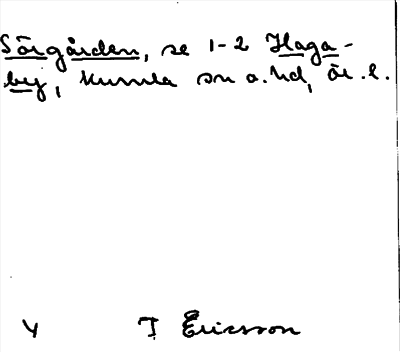 Sörgården, se 1-2 Haga-
by, Kumla sn o. hd, Ör. l.
Y T Ericsson